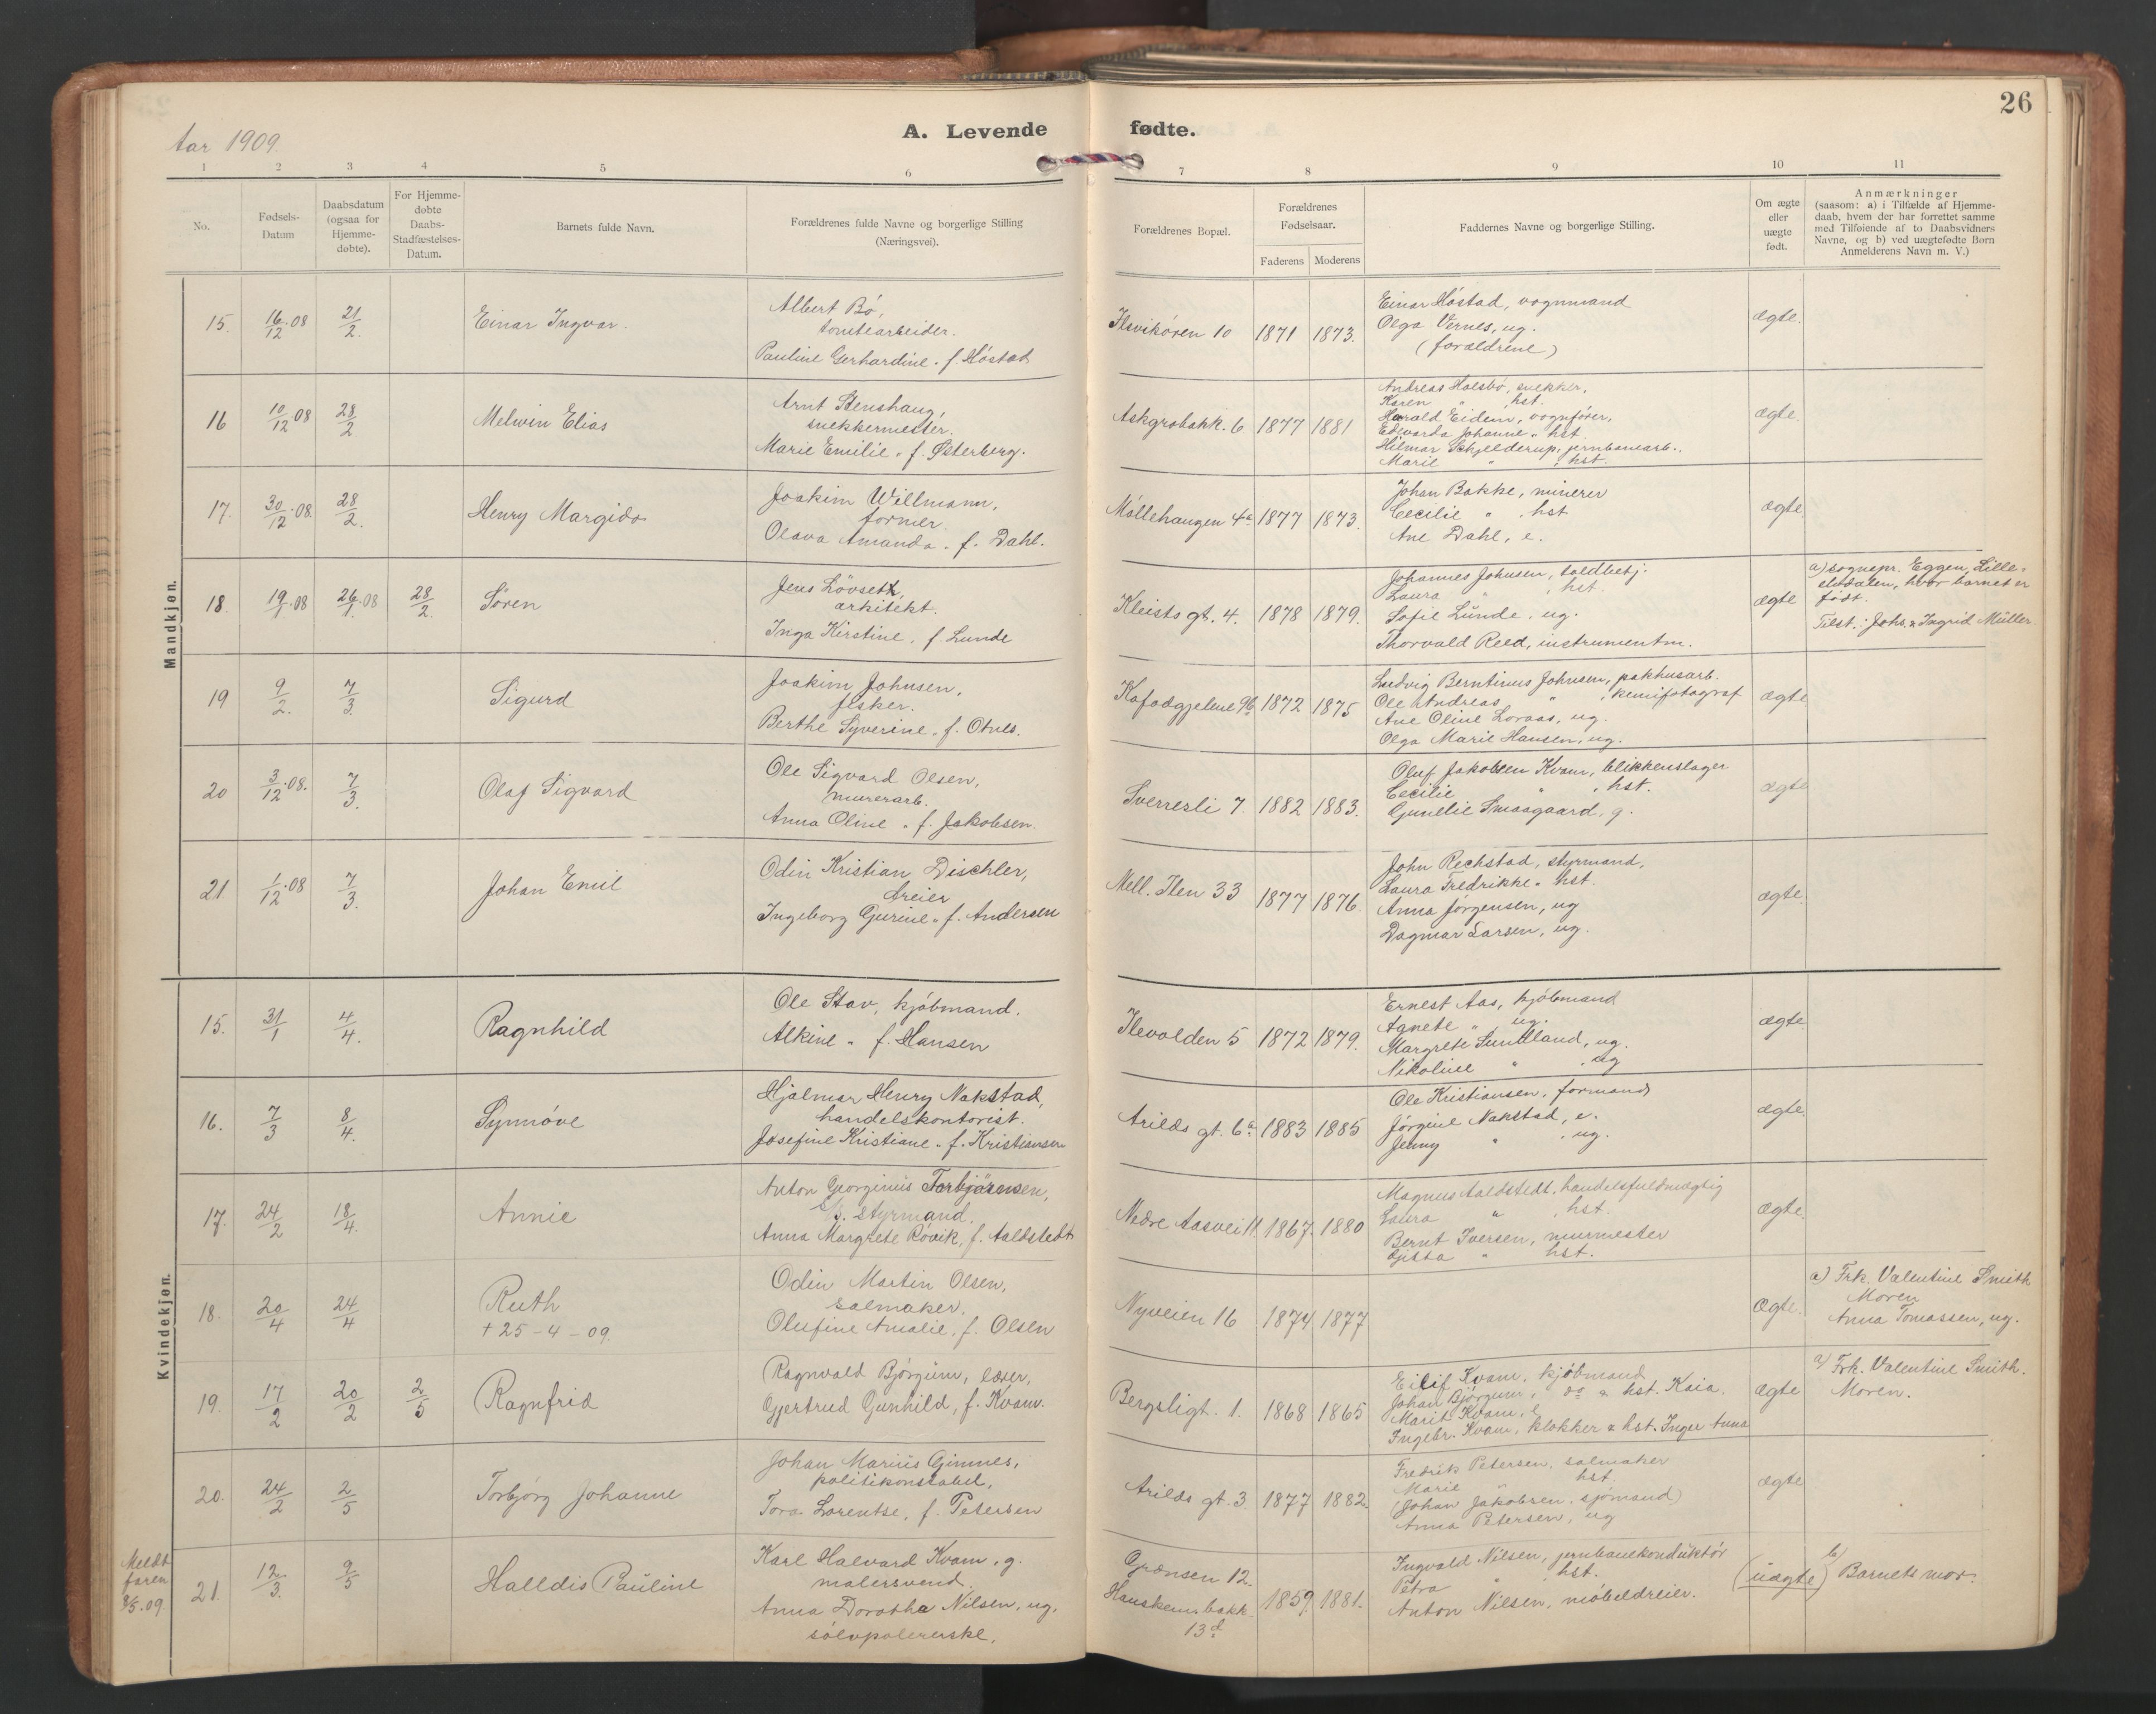 26
Aar 1909.
A. Levende fødte.
1 2 3 4 5 6 7 8 9 10 11
No.
Fødsels-
Datum
Daabsdatum
(ogsaa for
Hjemme-
døbte).
For Hjemme-
døbte
Daabs-
Stadfæstelses-
Datum.
Barnets fulde Navn.
Forældrenes fulde Navne og borgerlige Stilling
(Næringsvei).
Forældrenes Bopæl.
Forældrenes
Fødselsaar.
Faderens Moderens
Faddernes Navne og borgerlige Stilling.
Om ægte
eller
uægte
født.
Anmærkninger
(saasom: a) i Tilfælde af Hjemme-
daab, hvem der har forrettet samme
med Tilføiende af to Daabsvidners
Navne, og b) ved uægtefødte Børn
Anmelderens Navn m. V.)
Mandkjøn.
15. 16/12·08 21/2. Einar Ingvar.
Albert Bö,
tomtearbeider.
Pauline Gerhardine „ f. Höstad
Ilsvikören 10 1871 1873.
Einar Höstad, vognmand
Olga Vernes, ug.
(forældrene)
ægte.
16 10/12·08 28/2 Melwin Elias
Arnt Stenshaug,
snekkermester.
Marie Emilie „ f. Østerberg.
Askgrobakk. 6 1877 1881
Andreas Halsbö, snekker,
Karen „ hst.
Harald Eidem, vognfører,
Edevarda Johanne „ hst.
Hilmar Schjelderup, jernbanearb.,
Marie „ , hst.
ægte.
17. 30/12·08. 28/2. Henry Margido
Joakim Willmann,
former.
Olava Amanda „ f. Dahl.
Möllehaugen 4a 1877 1873.
Johan Bakke, minerer
Cecilie „ , hst
Ane Dahl, e.
ægte.
18. 19/1·08 26/1·08 28/2. Sören
Jens Lövseth,
arkitekt.
Inga Kirstine, f. Lunde
Kleists gt. 4. 1878 1879.
Johannes Johnsen, toldbetj.
Laura „ , hst.
Sofie Lunde, ug.
Thorvald Reed, instrumentm.
ægte
a) sognepr. Eggen, Lille-
elvdalen, hvor barnet er
födt.
Tilst.: Johs. & Ingrid Müller.
19 9/2. 7/3. Sigurd
Joakim Johnsen,
fisker.
Berthe Syverine „ f. Otnes.
1872 1875
Ludvig Berntinus Johnsen, pakhusarb.
Ole Andreas „ , kemifotograf
Ane Oline Loraas, ug.
Olga Marie Hansen, ug.
ægte
20 3/12·08. 7/3. Olaf Sigvard
Ole Sigvard Olsen,
murerarb.
Anna Oline „ f. Jakobsen.
Sverresli 7. 1882 1883.
Oluf Jakobsen Kvam, blikkenslager
Cecilie „ , hst.
Gunelie Smaagaard, g.
ægte
21 1/12·08 7/3. Johan Emil
Odin Kristian Dischler,
dreier
Ingeborg Gurine „ f. Andersen
Mell. Ilen 33 1877 1876.
John Rechstad, styrmand,
Laura Fredrikke „ hst.
Anna Jørgensen, ug
Dagmar Larsen, ug.
ægte.
Kvindekjøn.
15. 31/1 4/4. Ragnhild
Ole Stav, kjöbmand.
Alkine „ f. Hansen
Ilevolden 5 1872 1879.
Ernest Aas, kjöbmand
Agnete „ ug.
Margrete Sundland, ug.
Nikoline „ , ug
ægte
16. 7/3 8/4. Synnöve
Hjalmar Henry Nakstad,
handelskontorist.
Josefine Kristiane „ f. Kristiansen
Arilds gt. 6a 1883 1885
Ole Kristiansen, formand
Jörgine Nakstad, e.
Jenny „ , ug.
ægte.
17. 24/2 18/4. Annie
Anton Georginius Torbjörnsen,
styrmand.
Anna Margrete Rövik, f. Aaldstedt
Nedre Aasvei 11. 1867. 1880
Magnus Aaldstedt, handelsfuldmægtig
Laura „ , hst.
Bernt Iversen, murmester
Gjista „ hst.
ægte.
18. 20/4 24/4 Ruth
+ 25 - 4 - 09.
Odin Martin Olsen,
salmaker,
Olufine Amalie, f. Olsen
Nyveien 16 1874 1877
Ægte.
a) Frk. Valentine Smith
Moren
Anna Tomassen, ug.
19. 17/2 20/2 2/5 Ragnfrid
Ragnvald Björgum, lærer,
Gjertrud Gunhild, f. Kvam.
Bergsligt. 1. 1868 1865
Eilif Kvam, kjöbmand
Johan Björgum, do & hst. Kaia.
Marit Kvam, e.
Ingebr. Kvam, klokker & hst. Inger Anna
ægte
a) Frk. Valentine Smith.
Moren.
20. 24/2 2/5 Torbjörg Johanne
Johan Marius Gimnes,
politikonstabel,
Tora Lorentse, f. Petersen
Arilds gt. 3 1877 1882.
Fredrik Petersen, salmaker
Marie „ hst.
(Johan Jakobsen, sjömand)
Anna Petersen, ug
ægte
Meldt
faren
8/5.09.
21. 12/3. 9/5 Halldis Pauline
Karl Halvard Kvam, g.
malersvend.
Anna Dorothea Nilsen, ug.
sölvpolererske.
Grænsen 12.
Hauskensbakk.
13d
1859. 1881.
Ingvald Nilsen, jernbanekonduktör
Petra „ , hst.
Anton Nilsen, möbeldreier.
(uægte)
b) Barnets mor.